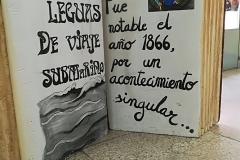 LEGUAS
DE VIAJE
SUBMARINO
Fue
notable el
año 1866,
por un
acontecimiento
singular...